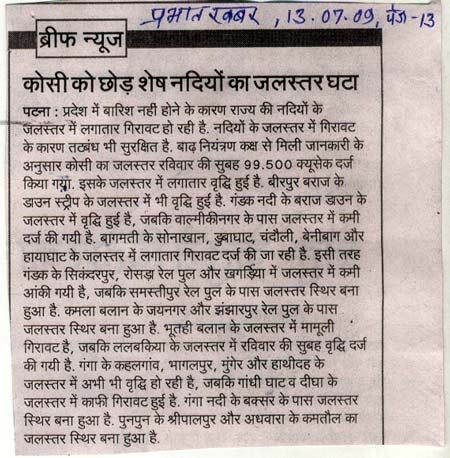 प्रभात खबर, 13.07.09, पेज-13
ब्रीफ न्यूज
कोसी को छोड़ शेष नदियों का जलस्तर घटा
पटना : प्रदेश में बारिश नहीं होने के कारण राज्य की नदियों के
जलस्तर में लगातार गिरावट हो रही है. नदियों के जलस्तर में गिरावट
के कारण तटबंध भी सुरक्षित है. बाढ़ नियंत्रण कक्ष से मिली जानकारी के
अनुसार कोसी का जलस्तर रविवार की सुबह 99.500 क्यूसेक दर्ज
किया गया. इसके जलस्तर में लगातार वृद्धि हुई है. बीरपुर बराज के
डाउन स्ट्रीप के जलस्तर में भी वृद्धि हुई है. गंडक नदी के बराज डाउन के
जलस्तर में वृद्धि हुई है, जबकि वाल्मीकीनगर के पास जलस्तर में कमी
दर्ज की गयी है. बागमती के सोनाखान, डुबाघाट, चंदौली, बेनीबाग और
हायाघाट के जलस्तर में लगातार गिरावट दर्ज की जा रही है. इसी तरह
गंडक के सिकंदरपुर, रोसड़ा रेल पुल और खगड़िया में जलस्तर में कमी
आंकी गयी है, जबकि समस्तीपुर रेल पुल के पास जलस्तर स्थिर बना
हुआ है. कमला बलान के जयनगर और झंझारपुर रेल पुल के पास
जलस्तर स्थिर बना हुआ है. भूतही बलान के जलस्तर में मामूली
गिरावट है, जबकि ललबकिया के जलस्तर में रविवार की सुबह वृद्धि दर्ज
की गयी है. गंगा के कहलगांव, भागलपुर, मुंगेर और हाथीदह के
जलस्तर में अभी भी वृद्धि हो रही है, जबकि गांधी घाट व दीघा के
जलस्तर में काफी गिरावट हुई है. गंगा नदी के बक्सर के पास जलस्तर
स्थिर बना हुआ है. पुनपुन के श्रीपालपुर और अधवारा के कमतौल का
जलस्तर स्थिर बना हुआ है.